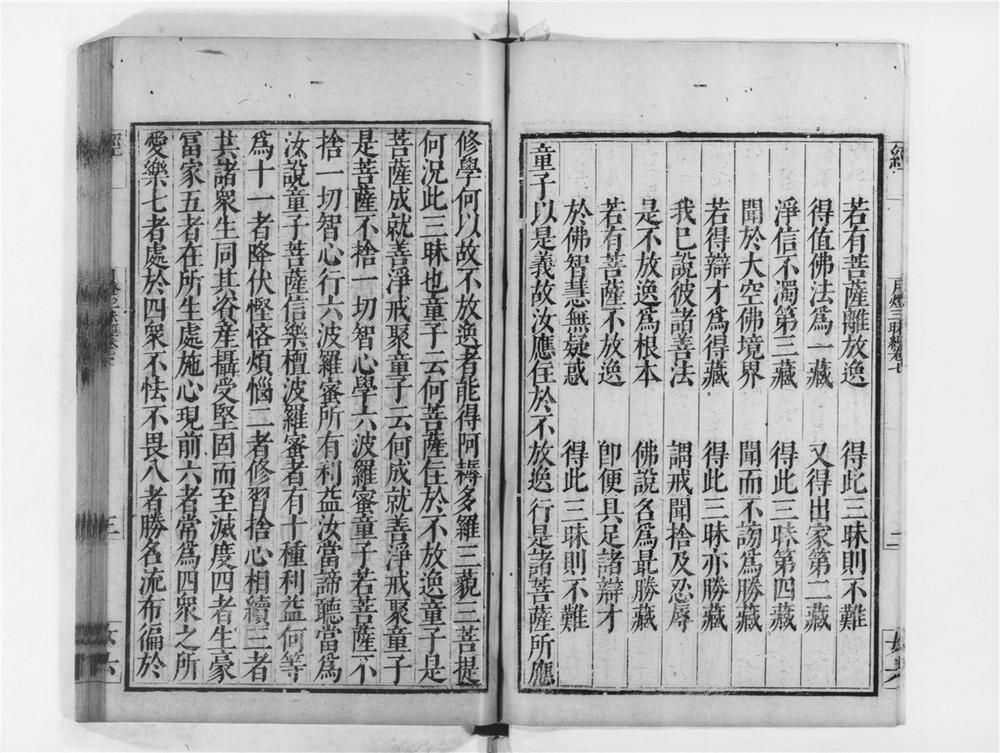 若有菩薩離放逸 得此三昧則不難
得值佛法為一藏 又得出家第二藏
淨信不濁第三藏 得此三昧第四藏
聞於大空佛境界 聞而不謗為勝藏
若得辯才為得藏 得此三昧亦勝藏
我已說彼諸善法 謂戒聞捨及忍辱
是不放逸為根本 佛說名為最勝藏
若有菩薩不放逸 即便具足諸辯才
於佛智慧無疑惑 得此三昧則不難
童子以是義故汝應住於不放逸行是諸菩薩所應
修學何以故不放逸者能得阿耨多羅三藐三菩提
何況此三昧也童子云何菩薩住於不放逸童子是
菩薩成就善淨戒聚童子云何成就善淨戒聚童子
是菩薩不捨一切智心學六波羅蜜童子若菩薩不
捨一切智心行六波羅蜜所有利益汝當諦聽當爲
汝說童子菩薩信樂檀波羅蜜者有十種利益何等
爲十一者降伏慳悋煩惱二者修習捨心相續三者
共諸衆生同其資産攝受堅固而至滅度四者生豪
冨家五者在所生處施心現前六者常爲四衆之所
愛樂七者處於四衆不怯不畏八者勝名流布徧於
經
月燈三昧經卷七
二
經
三